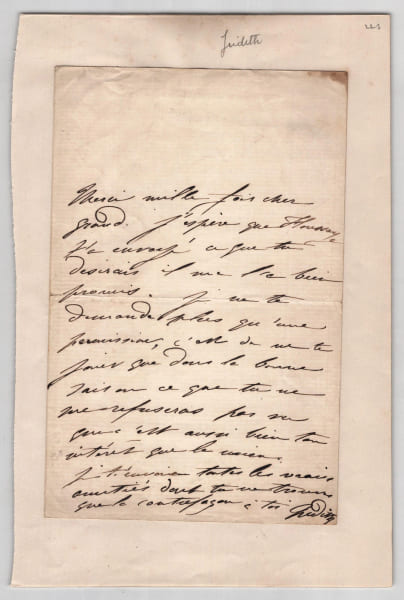 Judith
Merci mille fois cher
grand. j'espère que Houssaye
t'a envoyé ce que tu
desirais il me l'a bien
promis. je ne te
demande plus qu'une
permission, c'est de ne te
jouer que dans la bonne
saison ce que tu ne
me refuseras pas vu
que c'est aussi bien ton
intérêt que le mien.
je t'envoie toutes les vraies
amitiés dont tu ne trouves
que la contrefaçon à toi Judith